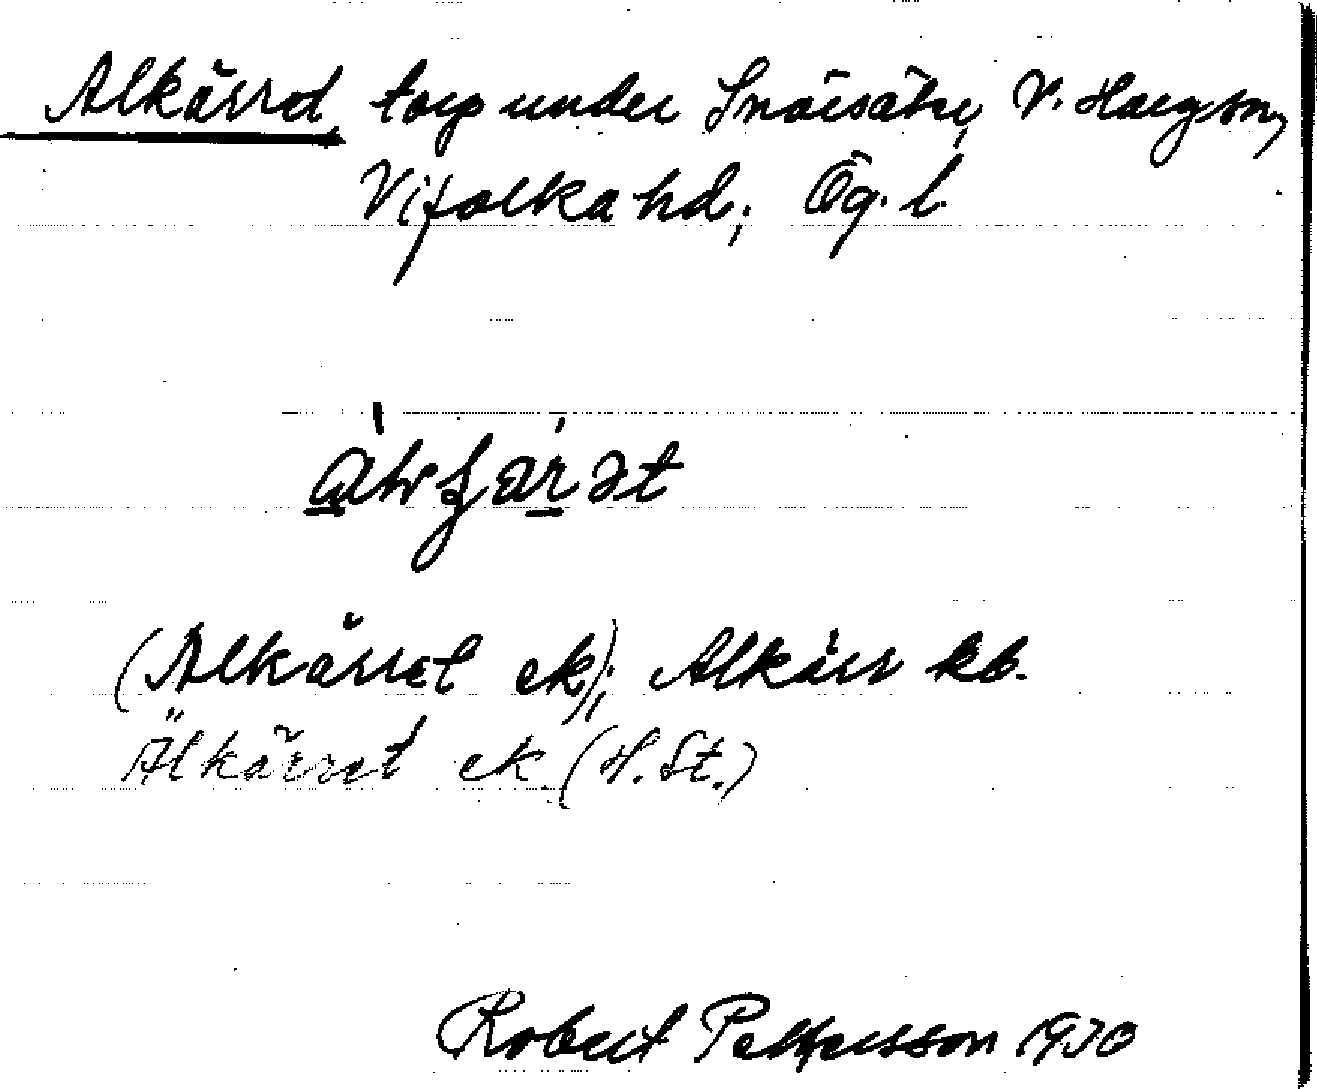 Alkärret torp under Snörsäter, V. Harg sn,
Vifolka hd, Ög. l.
(Alkärret ek), Alkärr kb.
Älkärret ek (H. St.)
Robert Pettersson 1930